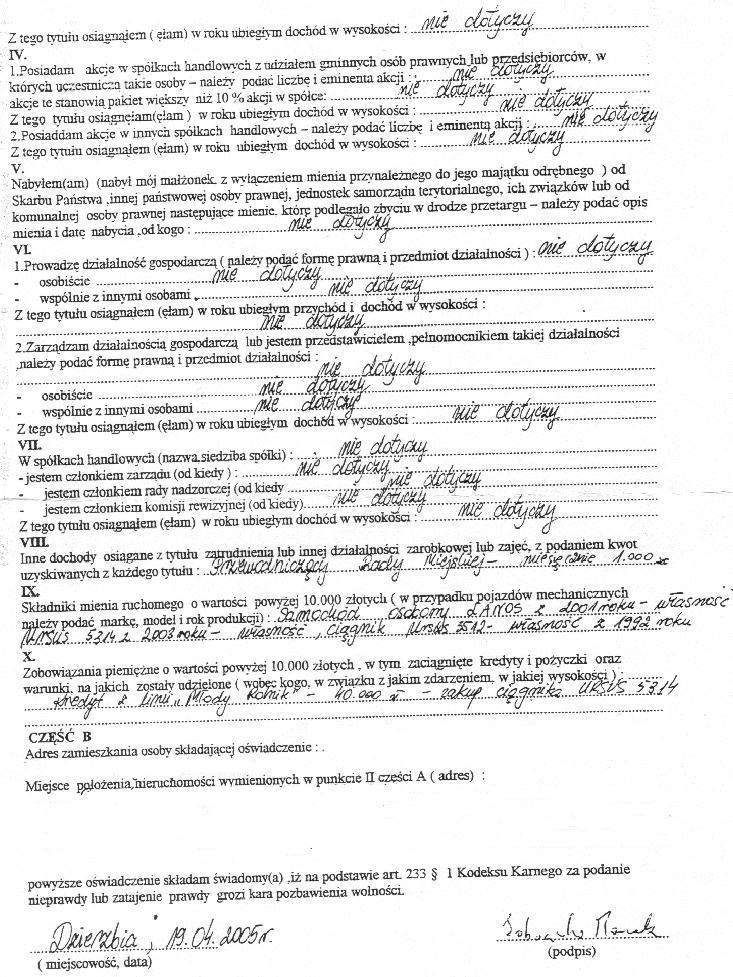 Z tego tytułu osiągnąłem ( ęłam) w roku ubiegłym dochód w wysokości : nie dotyczy
IV.
1.Posiadam akcje w spółkach handlowych z udziałem gminnych osób prawnych lub przedsiębiorców, w
których uczestniczą takie osoby – należy podać liczbę i eminenta akcji : nie dotyczy
akcje te stanowią pakiet większy niż 10 % akcji w spółce: nie dotyczy
Z tego tytułu osiągnęłam(ęłam ) w roku ubiegłym dochód w wysokości : nie dotyczy
2.Posiaddam akcje w innych spółkach handlowych – należy podać liczbę i eminentą akcji : nie dotyczy
Z tego tytułu osiągnąłem (ęłam) w roku ubiegłym dochód w wysokości : nie dotyczy
V.
Nabyłem(am) (nabył mój małżonek, z wyłączeniem mienia przynależnego do jego majątku odrębnego ) od
Skarbu Państwa ,innej państwowej osoby prawnej, jednostek samorządu terytorialnego, ich związków lub od
komunalnej osoby prawnej następujące mienie, które podlegało zbyciu w drodze przetargu – należy podać opis
mienia i datę nabycia ,od kogo : nie dotyczy
VI.
1.Prowadzę działalność gospodarczą ( należy podać formę prawną i przedmiot działalności ) : nie dotyczy
- osobiście nie dotyczy
- wspólnie z innymi osobami nie dotyczy
Z tego tytułu osiągnąłem (ęłam) w roku ubiegłym przychód i dochód w wysokości :
nie dotyczy
2.Zarządzam działalnością gospodarczą lub jestem przedstawicielem ,pełnomocnikiem takiej działalności
,należy podać formę prawną i przedmiot działalności :
nie dotyczy
- osobiście nie dotyczy
- wspólnie z innymi osobami nie dotyczy
Z tego tytułu osiągnąłem (ęłam) w roku ubiegłym dochód w wysokości : nie dotyczy
VII.
W spółkach handlowych (nazwa,siedziba spółki) : nie dotyczy
- jestem członkiem zarządu (od kiedy ) : nie dotyczy
- jestem członkiem rady nadzorczej (od kiedy nie dotyczy
- jestem członkiem komisji rewizyjnej (od kiedy) nie dotyczy
Z tego tytułu osiągnąłem (ęłam) w roku ubiegłym dochód w wysokości : nie dotyczy
VIII.
Inne dochody osiągane z tytułu zatrudnienia lub innej działalności zarobkowej lub zajęć, z podaniem kwot
uzyskiwanych z każdego tytułu : Przewodniczący Rady Miejskiej – miesięcznie 1.000 zł
IX.
Składniki mienia ruchomego o wartości powyżej 10.000 złotych ( w przypadku pojazdów mechanicznych
należy podać markę, model i rok produkcji) : Samochód osobowy LANOS z 2001 roku – własność
URSUS 5314 z 2003 roku – własność, ciągnik Ursus 3512 – własność z 1992 roku
X.
Zobowiązania pieniężne o wartości powyżej 10.000 złotych , w tym zaciągnięte kredyty i pożyczki oraz
warunki, na jakich zostały udzielone ( wobec kogo, w związku z jakim zdarzeniem, w jakiej wysokości ) :
kredyt z linii „Młody Rolnik" – 40.000 zł – zakup ciągnika URSUS 5314
CZĘŚĆ B
Adres zamieszkania osoby składającej oświadczenie : .
Miejsce położenia,nieruchomości wymienionych w punkcie II części A ( adres) :
powyższe oświadczenie składam świadomy(a) ,iż na podstawie art. 233 § 1 Kodeksu Karnego za podanie
nieprawdy lub zatajenie prawdy grozi kara pozbawienia wolności.
Dzierzbia, 19.04.2005r.
( miejscowość, data)
(podpis)